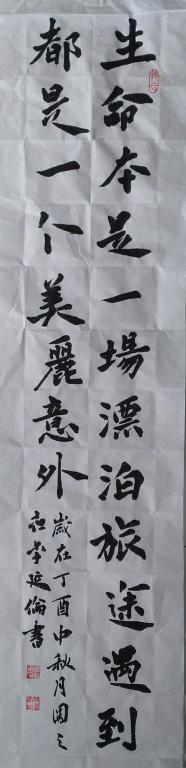 生命本是一場漂泊旅途遇到
都是一个美麗意外
歲在丁酉中秋月圆之
李延倫書